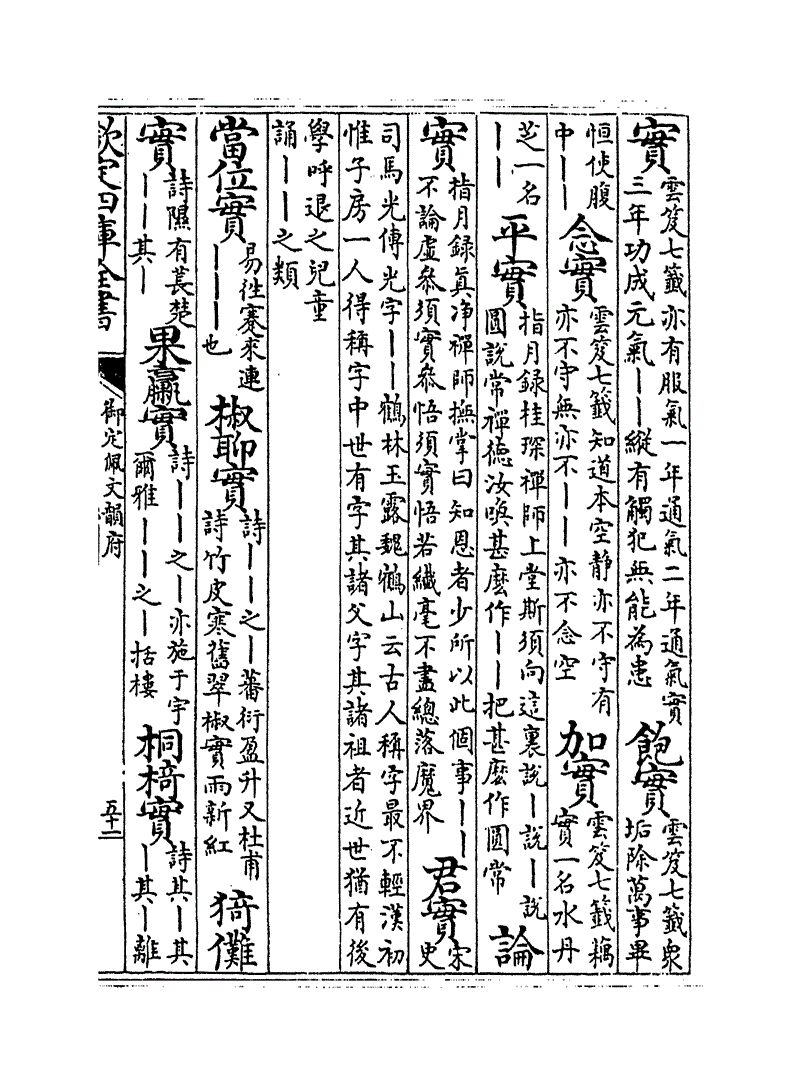 實
雲笈七籤亦有服氣一年通氣二年通氣實
三年功成元氣丨丨縱有觸犯無能為患
飽實
雲笈七籤衆
垢除萬事畢
恒使腹
中丨丨
念實
雲笈七籤知道本空静亦不守有
亦不守無亦不丨丨亦不念空
加實
雲笈七籤藕
實一名水丹
芝一名
丨丨
平實
指月録桂琛禪師上堂斯須向這裏說丨說丨說
圓說常禪德汝喚甚麽作丨丨把甚麽作圓常
論
實
指月録真净禪師撫掌曰知恩者少所以此個事丨丨
不論虛參須實參悟須實悟若纖毫不盡總落魔界
君實
宋
史
司馬光傳光字丨丨鶴林玉露魏鶴山云古人稱字最不輕漢初
惟子房一人得稱字中世有字其諸父字其諸祖者近世猶有後
學呼退之兒童
誦丨丨之類
當位實
易往蹇來連
丨丨丨也
椒聊實
詩丨丨之丨蕃衍盈升又杜甫
詩竹皮寒舊翠椒實雨新紅
猗儺
實
詩隰有萇楚
丨丨其丨
果臝實
詩丨丨之丨亦施于宇
爾雅丨丨之丨括樓
桐椅實
詩其丨其
丨其丨離
欽定四庫全書
御定佩文韻府
五十二